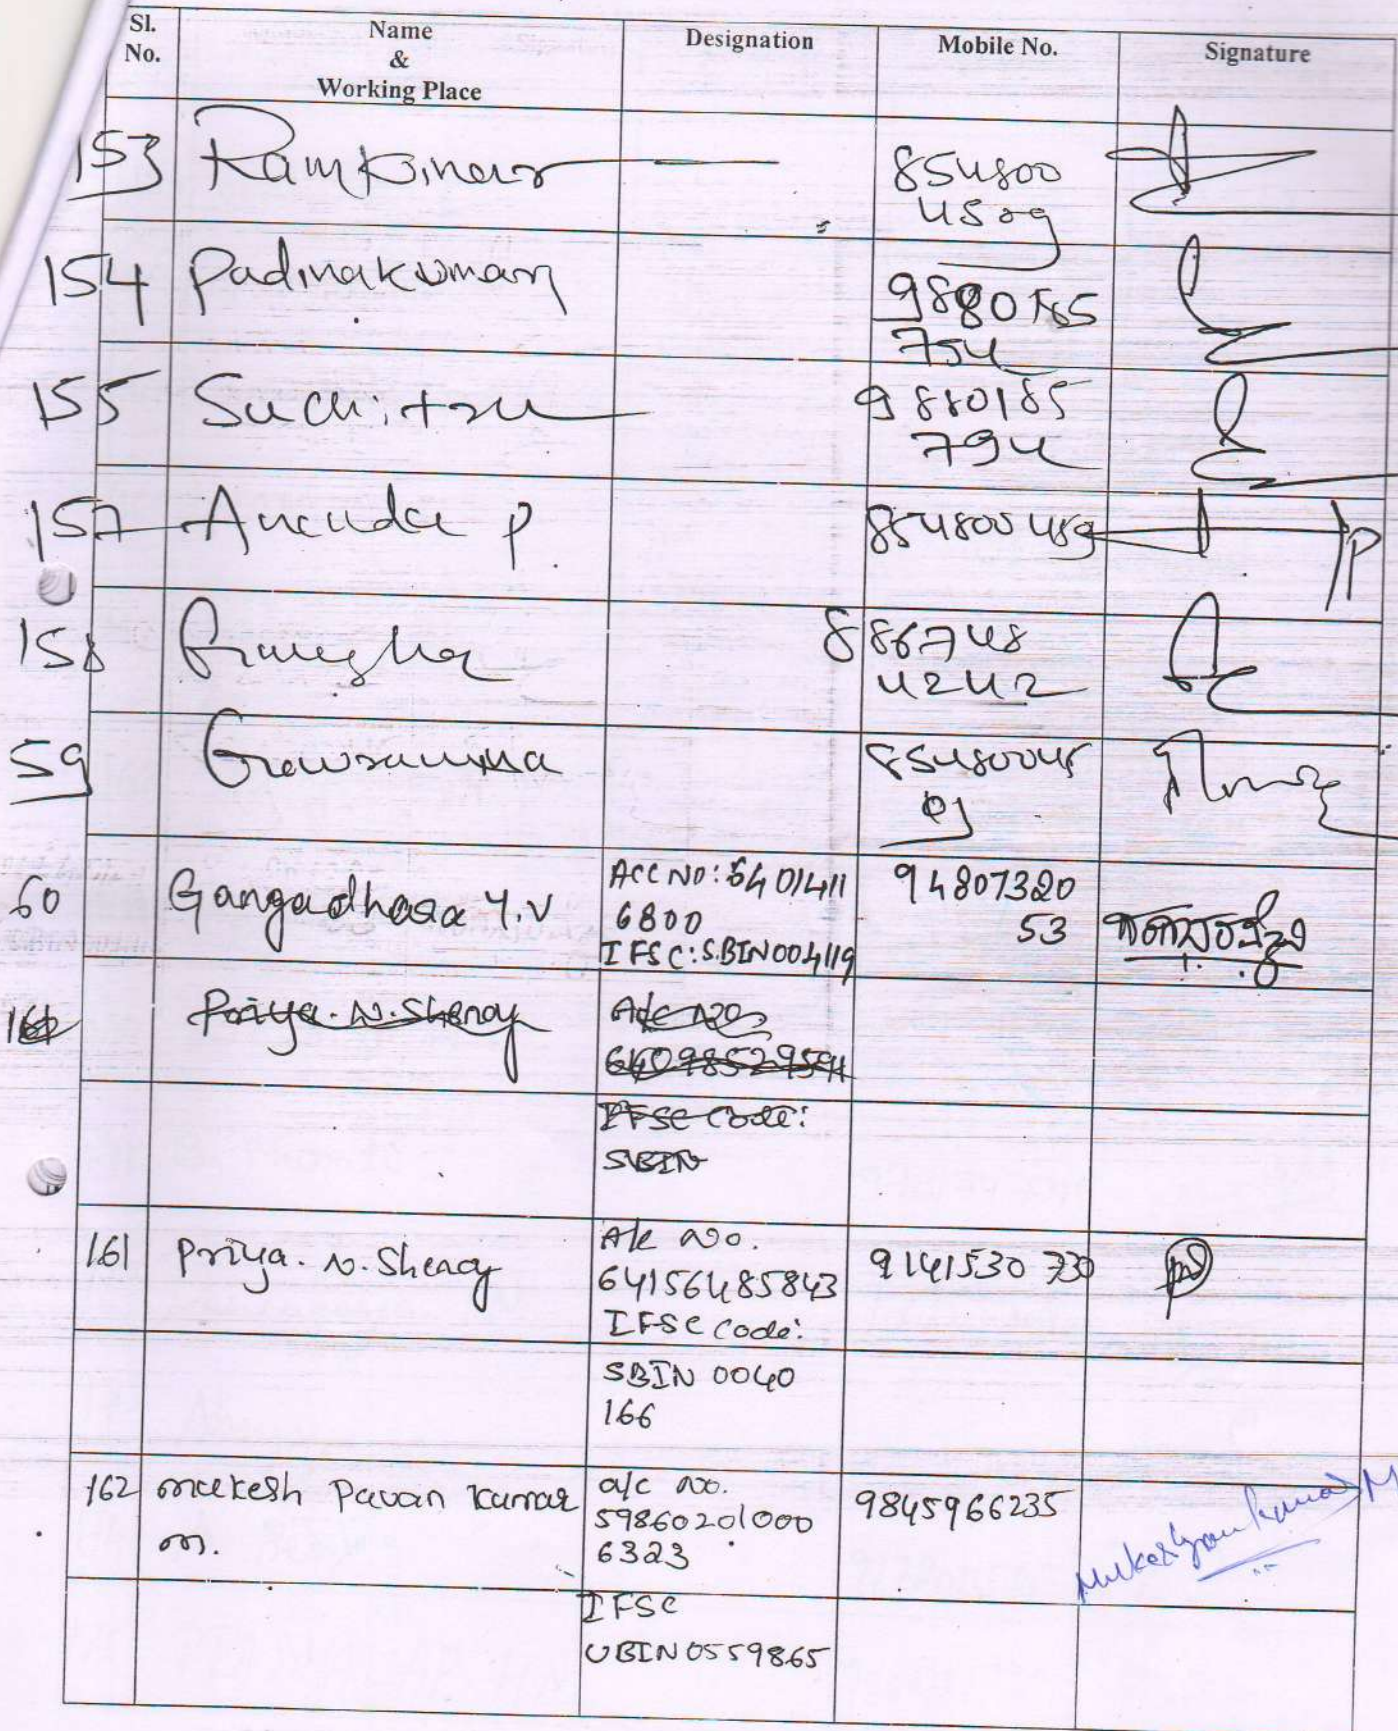 Sl. No.
Name & Working Place
Designation
Mobile No.
Signature
153 Ramkumar — 854800
4509
154 Padmakumari 9880185
754
155 Suchitra 9880185
794
157 Ananda P 854800459
158 886748
4242
59 Gowramma 85480045
09
60 Gangadhara Y.V ACC NO: 6401411 94807320
6800 53
IFSC: SBIN004119
Priya. N. Shenoy A/c No
64098529594
IFSC Code:
SBIN
161 Priya. N. Shenoy A/c No. 9141530730
64156485843
IFSC Code:
SBIN 0040
166
162 Mukesh Pavan Kumar a/c No. 9845966235
M. 59860201000
6323
IFSC
UBIN0559865